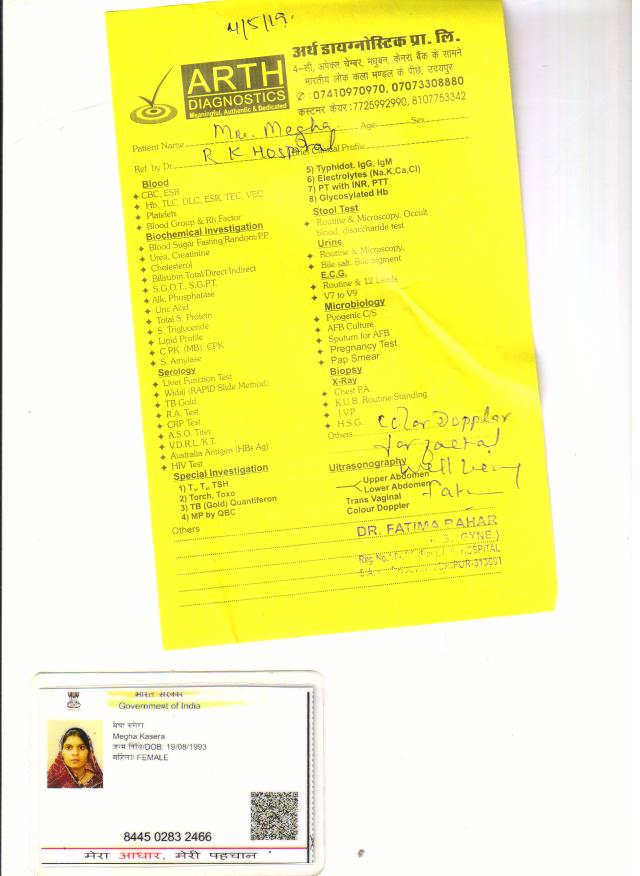 4/5/19.
अर्थ डायग्नोस्टिक प्रा. लि.
4-सी, अपेक्स चेम्बर, मधुबन, केनरा बैंक के सामने
भारतीय लोक कला मण्डल के पीछे, उदयपुर
✆ : 07410970970, 07073308880
कस्टमर केयर : 7725992990, 8107753342
ARTH
DIAGNOSTICS
Meaningful, Authentic & Dedicated
Patient Name Mrs. Megha Age Sex
Ref. by Dr. R K HOSPITAL Brief Clinical Profile
Blood
CBC, ESR
Hb, TLC, DLC, ESR, TEC, VEC
Platelets
Blood Group & Rh Factor
Biochemical Investigation
Blood Sugar Fasting/Random/P.P.
Urea, Creatinine
Cholesterol
Bilirubin Total/Direct/Indirect
S.G.O.T., S.G.P.T.
Alk. Phosphatase
Uric Acid
Total S. Protein
S. Triglyceride
Lipid Profile
C.P.K. (MB), CPK
S. Amylase
Serology
Liver Function Test
Widal (RAPID Slide Method)
TB Gold
R.A. Test
CRP Test
A.S.O. Titer
V.D.R.L./K.T.
Australia Antigen (HBs Ag)
HIV Test
Special Investigation
1) T₃, T₄, TSH
2) Torch, Toxo
3) TB (Gold) Quantiferon
4) MP by QBC
Others
5) Typhidot. IgG, IgM
6) Electrolytes (Na,K,Ca,Cl)
7) PT with INR, PTT
8) Glycosylated Hb
Stool Test
Routine & Microscopy, Occult
blood, disaccharide test
Urine
Routine & Microscopy,
Bile salt, Bile pigment
E.C.G.
Routine & 12 Leads
V7 to V9
Microbiology
Pyogenic C/S
AFB Culture
Sputum for AFB
Pregnancy Test
Pap Smear
Biopsy
X-Ray
Chest P.A.
K.U.B. Routine/Standing
I.V.P.
H.S.G.
Others
Color Doppler
for foetal
well being
Ultrasonography
Upper Abdomen
Lower Abdomen
Trans Vaginal
Colour Doppler
DR. FATIMA
GYNE.)
Reg No.
HOSPITAL
313001
भारत सरकार
Government of India
मेघा कसेरा
Megha Kasera
जन्म तिथि/DOB: 19/08/1993
महिला/ FEMALE
8445 0283 2466
मेरा आधार, मेरी पहचान